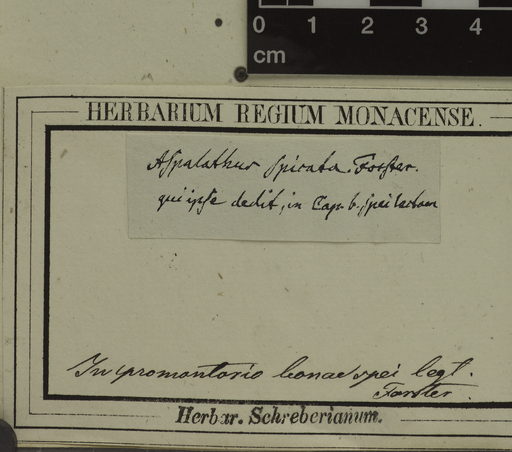 0 1 2 3 4
cm
HERBARIUM REGIUM MONACENSE.
Aspalathus spicata. Forster.
qui ipse dedit, in Cap. b. spei lectam
In promontorio bonae spei legt.
Forster.
Herbar. Schreberianum.